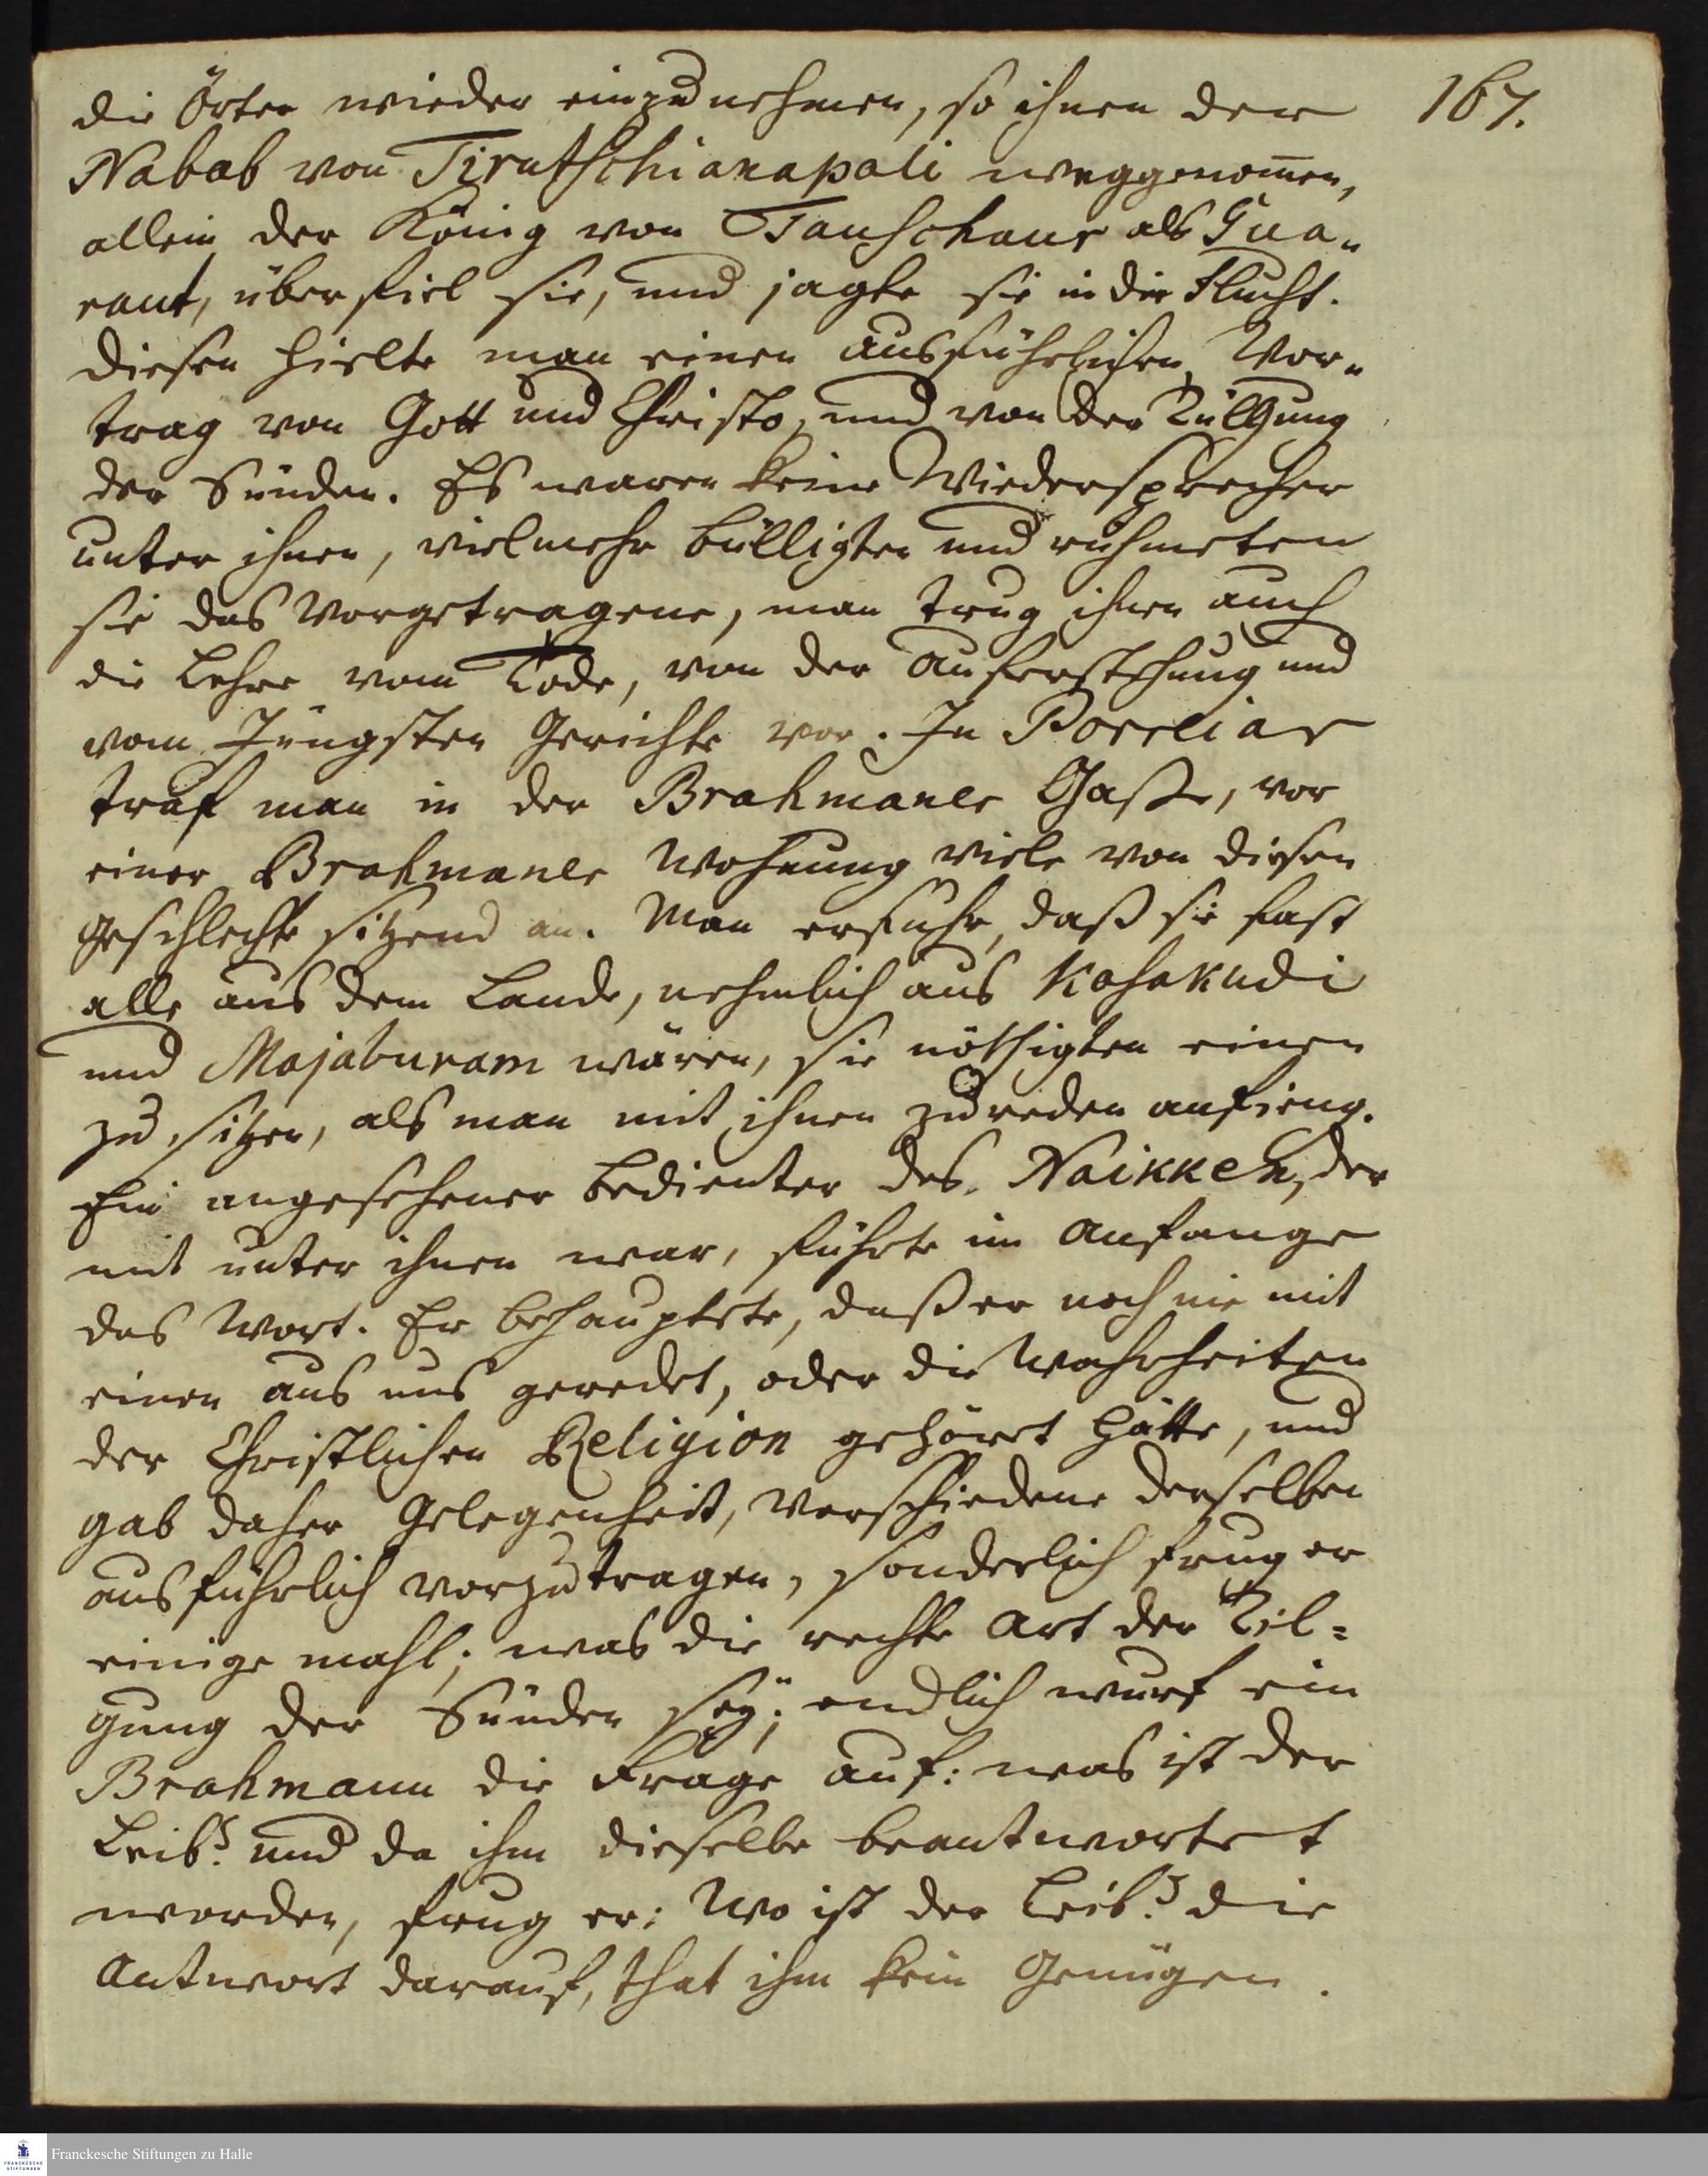 167.
die Örter wieder einzunehmen, so ihnen der
Nabab von Tirutschianapali weggenom̄en,
allein der König von Tanschaur als Gua„
rant, überfiel sie, und jagte sie in die Flucht.
diesen hielte man einen ausführlichen Vor„
trag von Gott und Christo, und von der Tüllgung
der Sünden. Es waren keine Wiedersprecher
unter ihnen, vielmehr büllligten und ruhmeten
sie das Vorgetragene, man trug ihnen auch
die Lehre vom Tode, von der Auferstehung und
vom Jüngsten Gerichte vor. In Poreiar
traf man in der Brahmaner Gasse, vor
einer Brahmaner Wohnung viele von diesen
Geschlecht sitzend an. Man erfuhr, daß sie fast
alle aus dem Lande, nehmlich aus Kosakudi
und Majaburam wären, sie nöthigten einen
zu sitzen, als man mit ihnen zu reden anfieng.
Ein angesehener Bedienter des Naikken, der
mit unter ihnen war, führte im Anfange
das Wort. Er behauptete, daß er noch nie mit
einen aus uns geredet, oder die Wahrheiten
der Christlichen Religion gehöret hätte, und
gab daher Gelegenheit, verschiedene derselben
ausführlich vorzutragen, sonderlich frug er
einige mahl; was die rechte Art der Til=
gung der Sünden seÿ; endlich wurf ein
Brahmann die Frage auf: was ist der
Leib? und da ihm dieselbe beantwortet
worden, frug er: Wo ist der Leib? die
Antwort darauf, that ihm kein Genügen.
Franckesche Stiftungen zu Halle
FRANCKESCHE
STIFTUNGEN